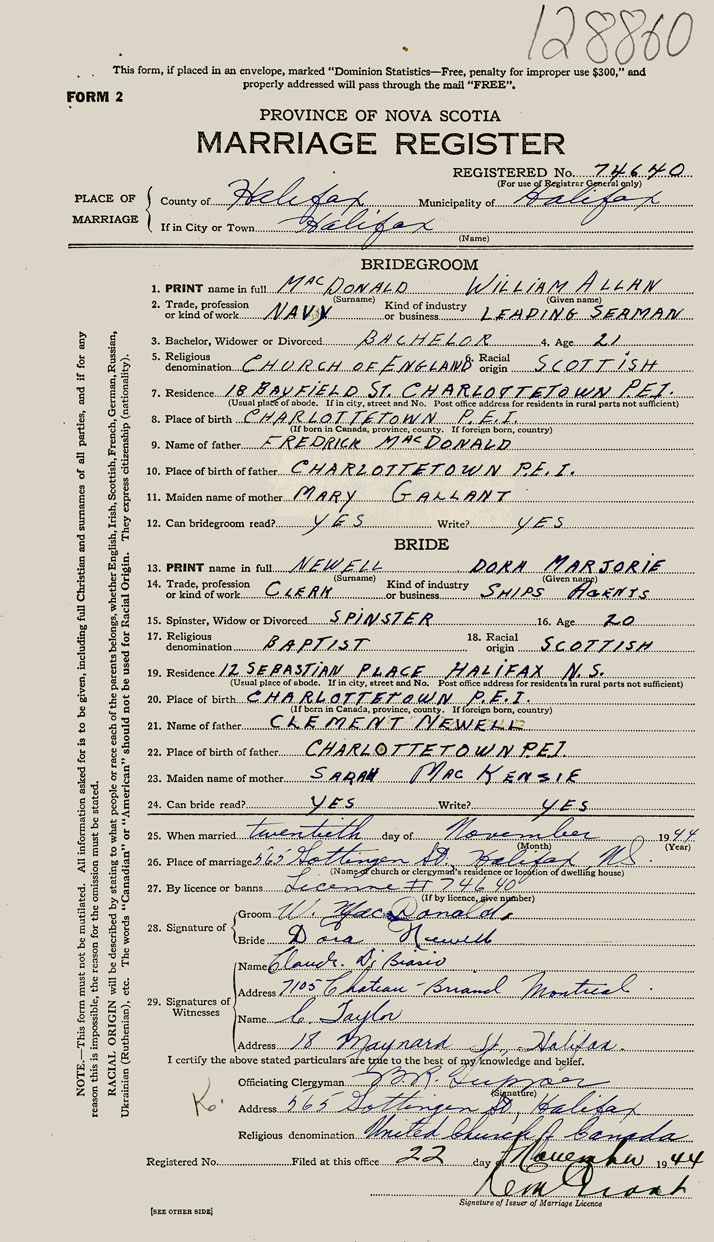 128860
This form, if placed in an envelope, marked "Dominion Statistics—Free, penalty for improper use $300," and
properly addressed will pass through the mail "FREE".
FORM 2
PROVINCE OF NOVA SCOTIA
MARRIAGE REGISTER
REGISTERED No. 74640
(For use of Registrar General only)
PLACE OF MARRIAGE
County of Halifax Municipality of Halifax
If in City or Town Halifax
(Name)
BRIDEGROOM
1. PRINT name in full MacDONALD WILLIAM ALLAN
(Surname) (Given name)
2. Trade, profession or kind of work NAVY Kind of industry or business LEADING SEAMAN
3. Bachelor, Widower or Divorced BACHELOR 4. Age 21
5. Religious denomination CHURCH OF ENGLAND 6. Racial origin SCOTTISH
7. Residence 18 BAYFIELD ST. CHARLOTTETOWN P.E.I.
(Usual place of abode. If in city, street and No. Post office address for residents in rural parts not sufficient)
8. Place of birth CHARLOTTETOWN P.E.I.
(If born in Canada, province, county. If foreign born, country)
9. Name of father FREDRICK MacDONALD
10. Place of birth of father CHARLOTTETOWN P.E.I.
11. Maiden name of mother MARY GALLANT
12. Can bridegroom read? YES Write? YES
BRIDE
13. PRINT name in full NEWELL DORA MARJORIE
(Surname) (Given name)
14. Trade, profession or kind of work CLERK Kind of industry or business SHIPS AGENTS
15. Spinster, Widow or Divorced SPINSTER 16. Age 20
17. Religious denomination BAPTIST 18. Racial origin SCOTTISH
19. Residence 12 SEBASTIAN PLACE HALIFAX N.S.
(Usual place of abode. If in city, street and No. Post office address for residents in rural parts not sufficient)
20. Place of birth CHARLOTTETOWN P.E.I.
(If born in Canada, province, county. If foreign born, country)
21. Name of father CLEMENT NEWELL
22. Place of birth of father CHARLOTTETOWN P.E.I.
23. Maiden name of mother SARAH MacKENSIE
24. Can bride read? YES Write? YES
25. When married twentieth day of November 1944
(Month) (Year)
26. Place of marriage 565 Gottingen St., Halifax N.S.
(Name of church or clergyman's residence or location of dwelling house)
27. By licence or banns License # 74640
(If by licence, give number)
28. Signature of
Groom W. MacDonald.
Bride Dora Newell
29. Signatures of Witnesses
Name Claude Di Biasio
Address 7105 Chateau-Briand Montreal.
Name C. Taylor
Address 18 Maynard St., Halifax.
I certify the above stated particulars are true to the best of my knowledge and belief.
Officiating Clergyman B.R.
(Signature)
Address 565 Gottingen St., Halifax
Religious denomination United Church of Canada
Registered No. Filed at this office 22 day of November 1944
Signature of Issuer of Marriage Licence
[SEE OTHER SIDE]
NOTE.—This form must not be mutilated. All information asked for is to be given, including full Christian and surnames of all parties, and if for any
reason this is impossible, the reason for the omission must be stated.
RACIAL ORIGIN will be described by stating to what people or race each of the parents belongs, whether English, Irish, Scottish, French, German, Russian,
Ukrainian (Ruthenian), etc. The words "Canadian" or "American" should not be used for Racial Origin. They express citizenship (nationality).